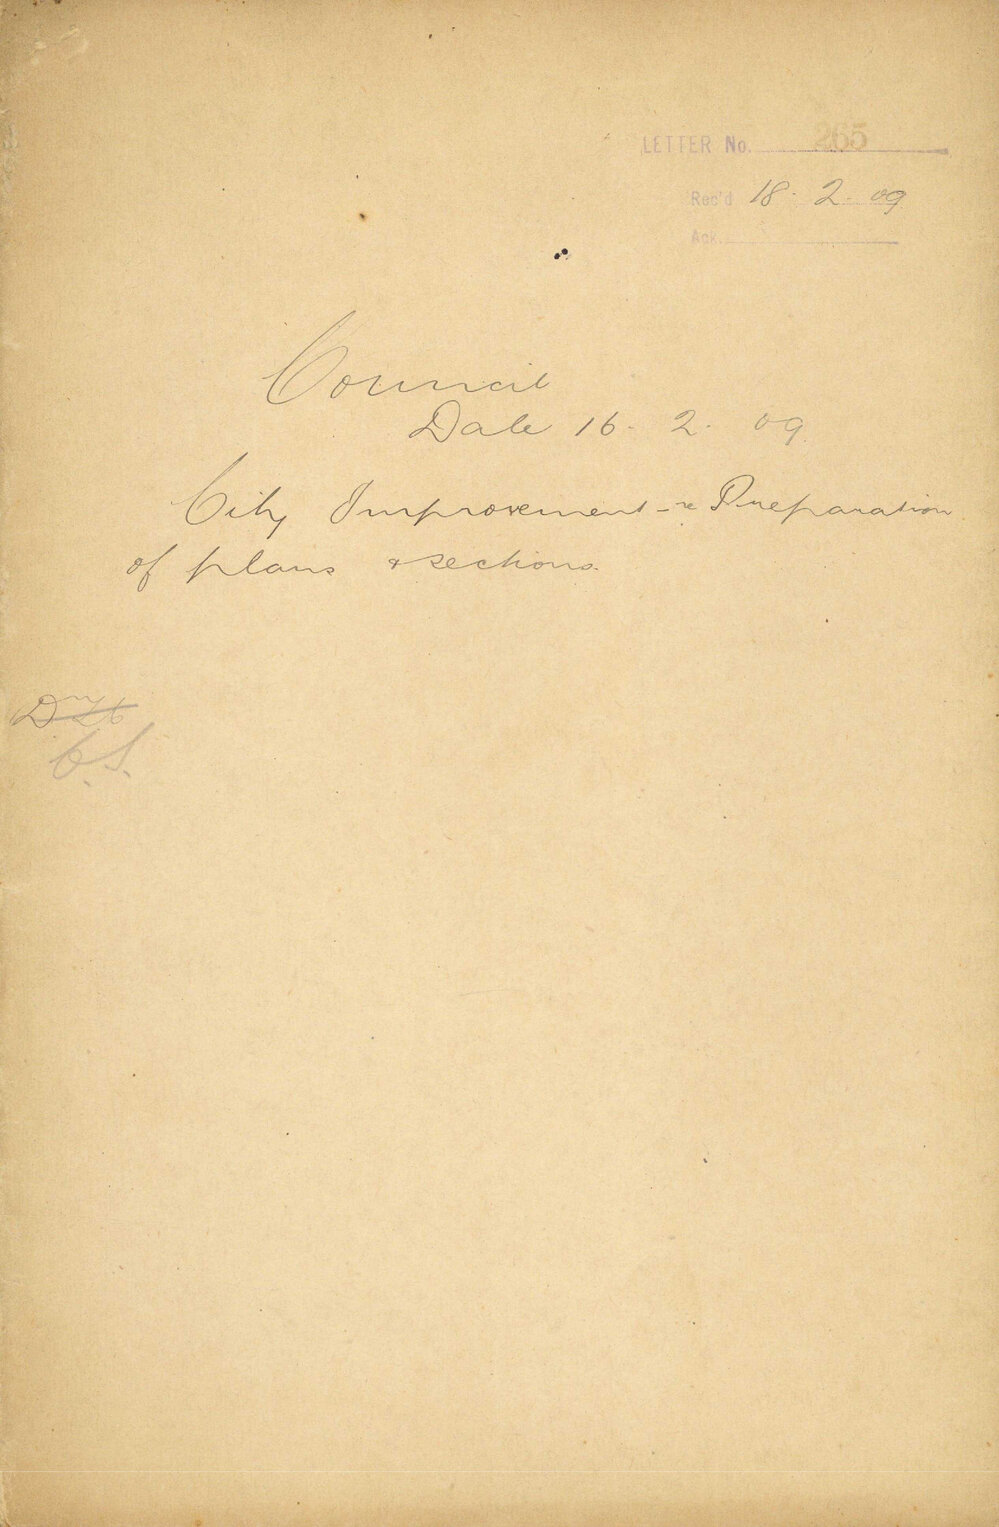 LETTER No. 265
Rec'd 18. 2. 09
Ack.
Council
Date 16. 2. 09
City Improvement - re Preparation
of plans & sections.
C.S.